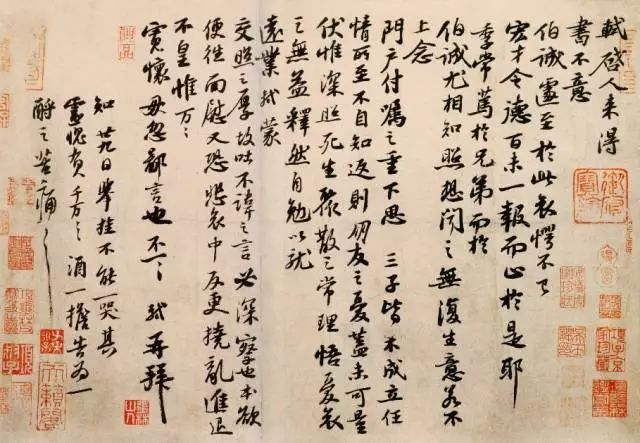 軾啓人來得
書不意
伯誠遽至於此哀愕不已
宏才令德百未一報而止於是耶
季常篤於兄弟而於
伯誠尤相知照想聞之無復生意若不
上念
門户付囑之重下思三子皆不成立任
情所至不自知返則朋友之憂蓋未可量
伏惟深照死生聚散之常理悟憂哀
之無益釋然自勉以就
遠業軾蒙
交照之厚故吐不諱之言必深察也本欲
便往面慰又恐悲哀中反更撓亂進退
不皇惟万〻
寬懷毋忽鄙言也不一〻軾再拜
知廿九日舉挂不能一哭其
靈愧負千万〻酒一擔告為一
酹之苦痛〻